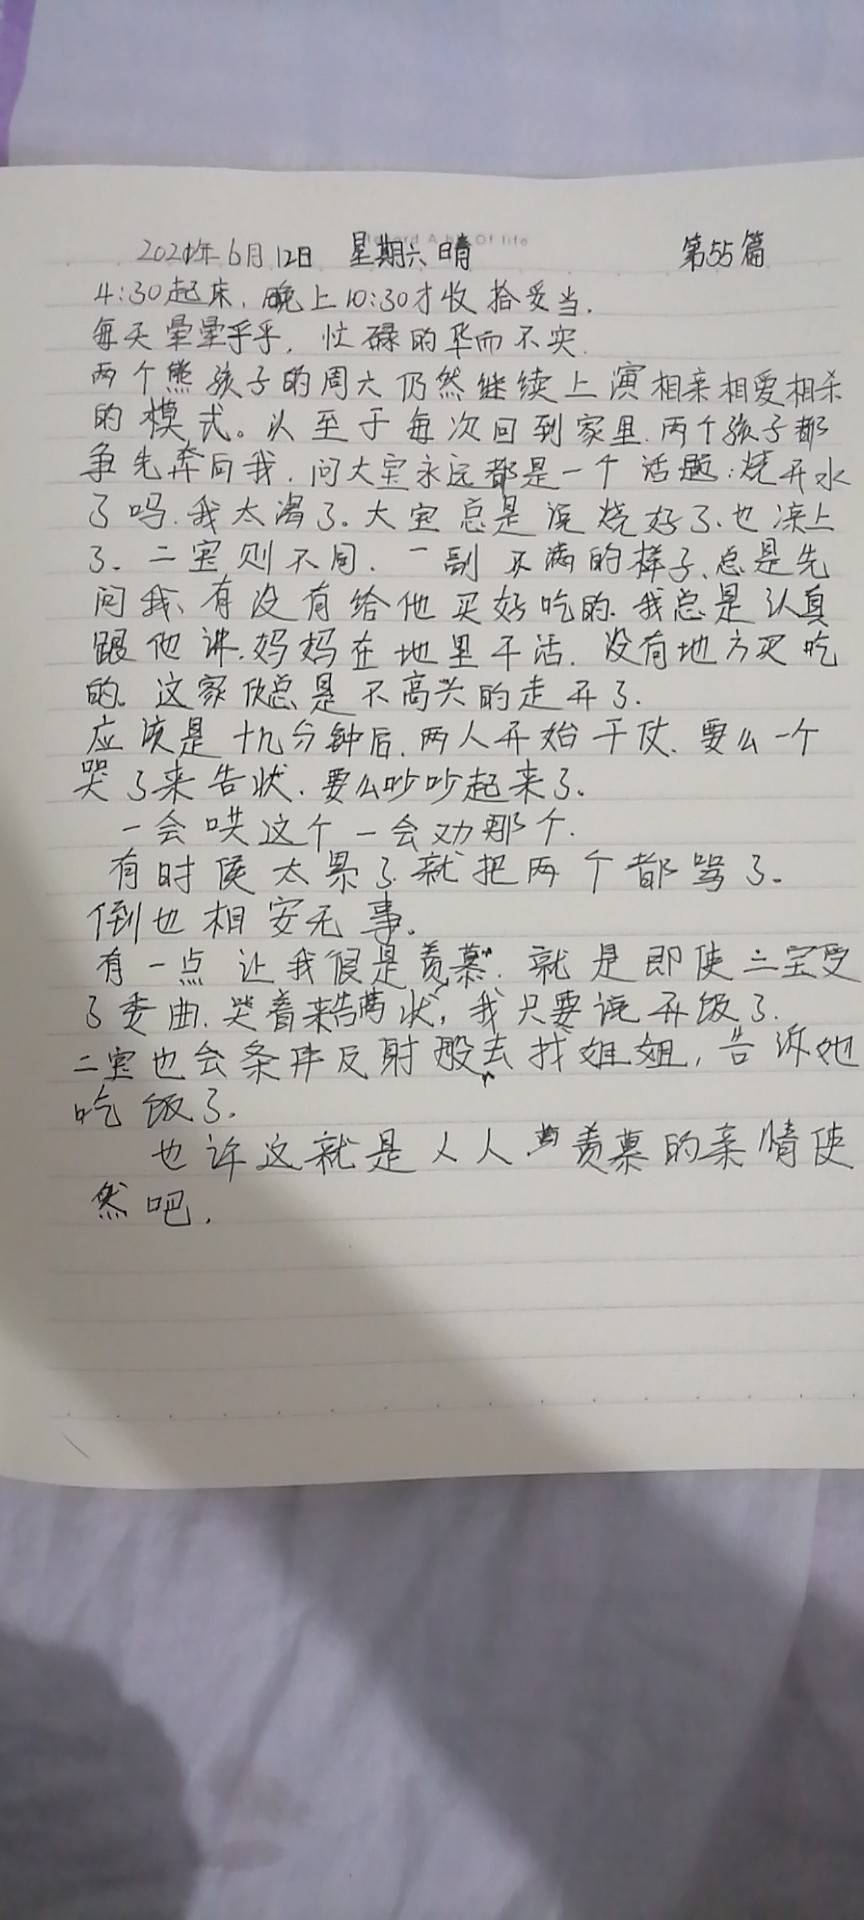 2021年6月12日 星期六 晴 第55篇
4:30起床,晚上10:30才收拾妥当.
每天晕晕乎乎,忙碌的华而不实.
两个熊孩子的周六仍然继续上演相亲相爱相杀
的模式。以至于每次回到家里.两个孩子都
争先奔向我.问大宝永远都是一个话题:烧开水
了吗.我太渴了.大宝总是说烧好了.也凉上
了.二宝则不同.一副不满的样子、总是先
问我、有没有给他买好吃的.我总是认真
跟他讲.妈妈在地里干活.没有地方买吃
的.这家伙总是不高兴的走开了.
应该是十几分钟后.两人开始干仗.要么一个
哭了来告状.要么吵吵起来了.
一会哄这个一会劝那个.
有时候太累了就把两个都骂了.
倒也相安无事.
有一点让我很是羡慕.就是即使二宝受
了委曲.哭着来告状,我只要说开饭了.
二宝也会条件反射般去找姐姐,告诉她
吃饭了.
也许这就是人人羡慕的亲情使
然吧.